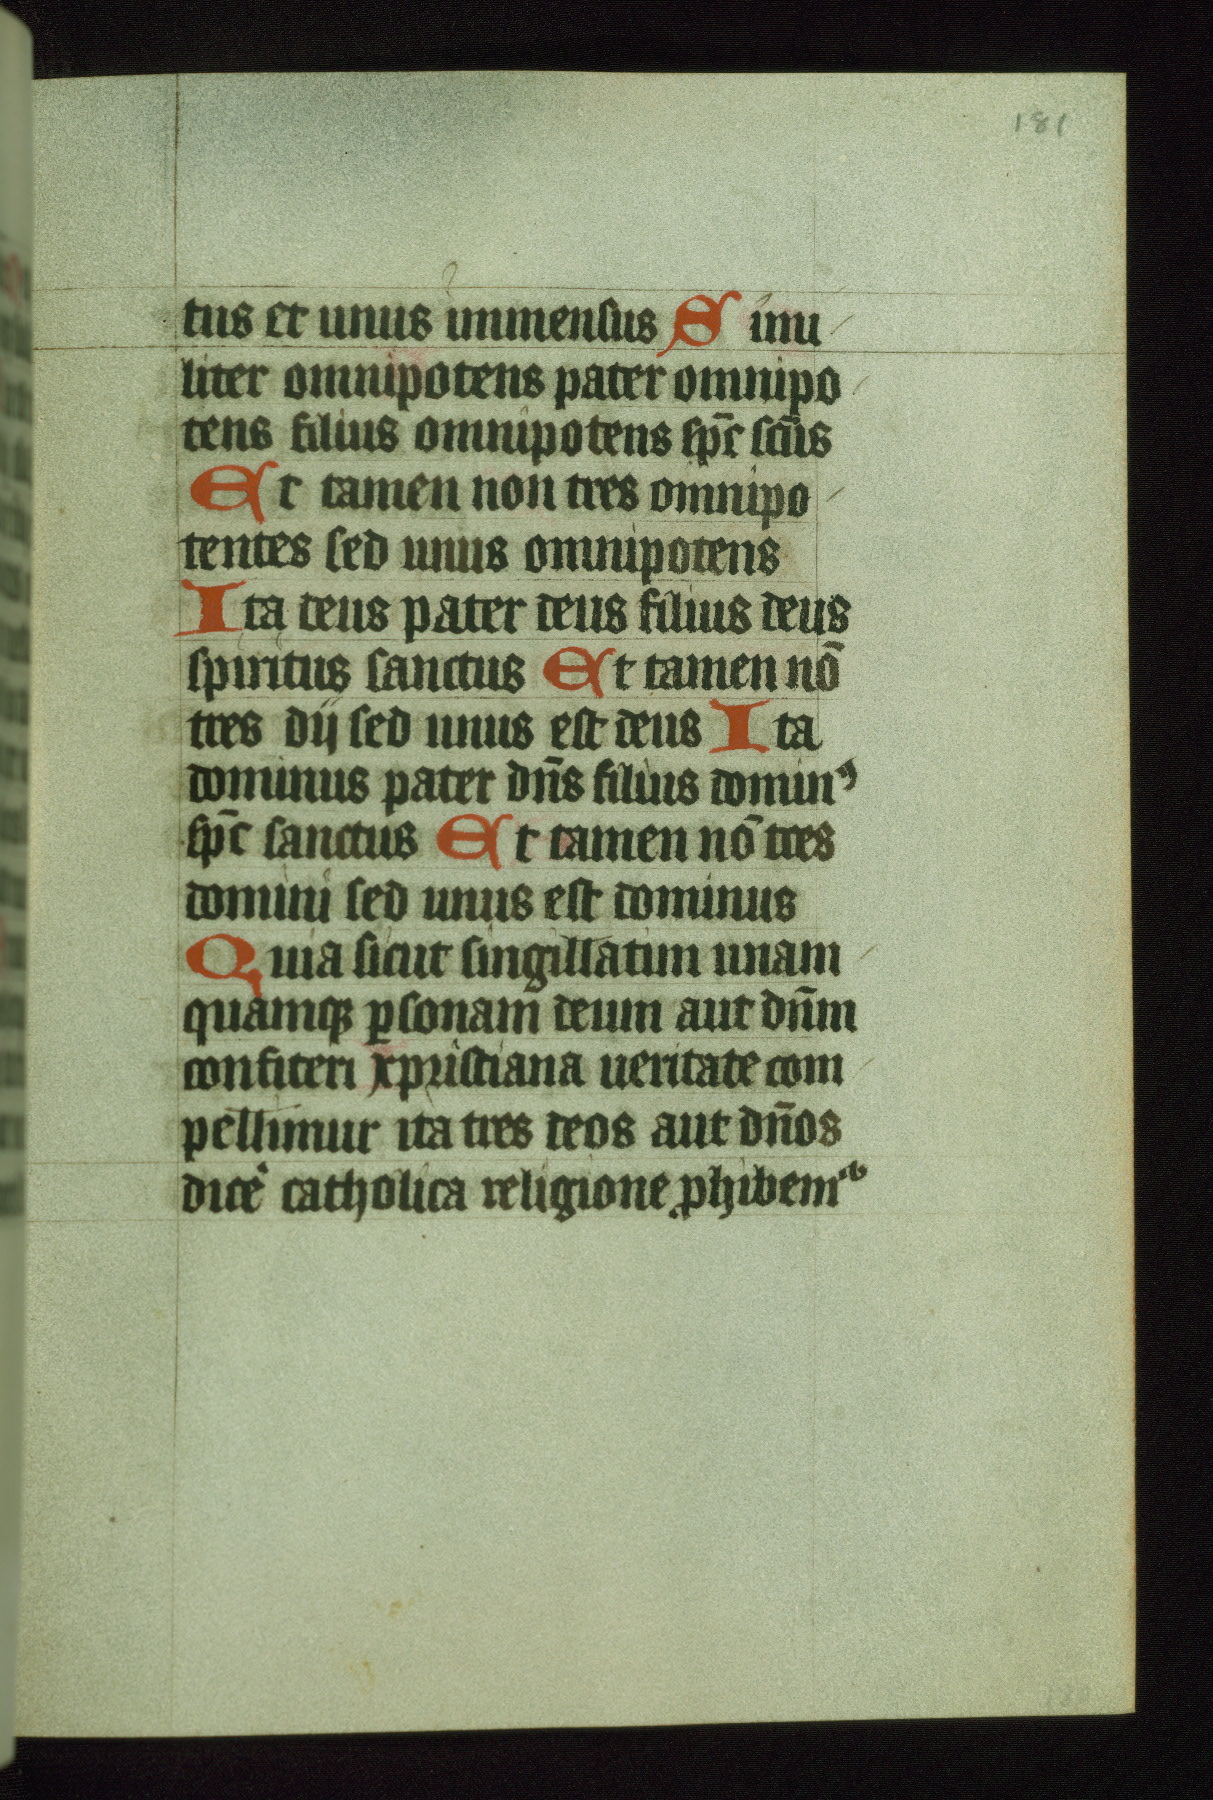 181
tus et unus immensus Simi
liter omnipotens pater omnipo
tens filius omnipotens sp̄c sc̄us
Et tamen non tres omnipo
tentes sed unus omnipotens
Ita deus pater deus filius deus
spiritus sanctus Et tamen nō
tres dij sed unus est deus Ita
dominus pater dn̄s filius dominꝰ
sp̄c sanctus Et tamen nō tres
domini sed unus est dominus
Quia sicut singillatim unam
quamqꝫ ꝑsonam deum aut dn̄m
confiteri xpristiana ueritate com
pellimur ita tres deos aut dn̄os
dicẻ catholica religione ꝓhibemᷣ